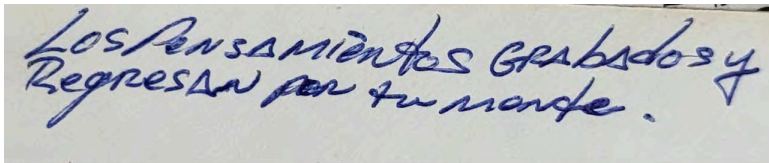 Los Pensamientos GRAbAdos y
RegResAN por tu mente.